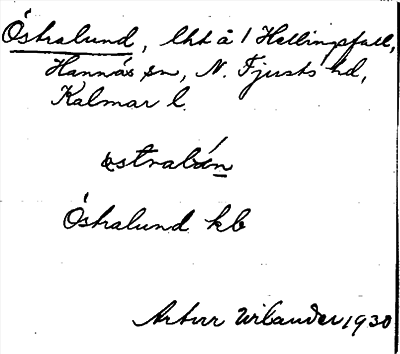 Östralund, lht å 1 Hellingsfall,
Hannäs sn, N. Tjusts hd,
Kalmar l.
östralún
Östralund kb
Artur Wilander 1930